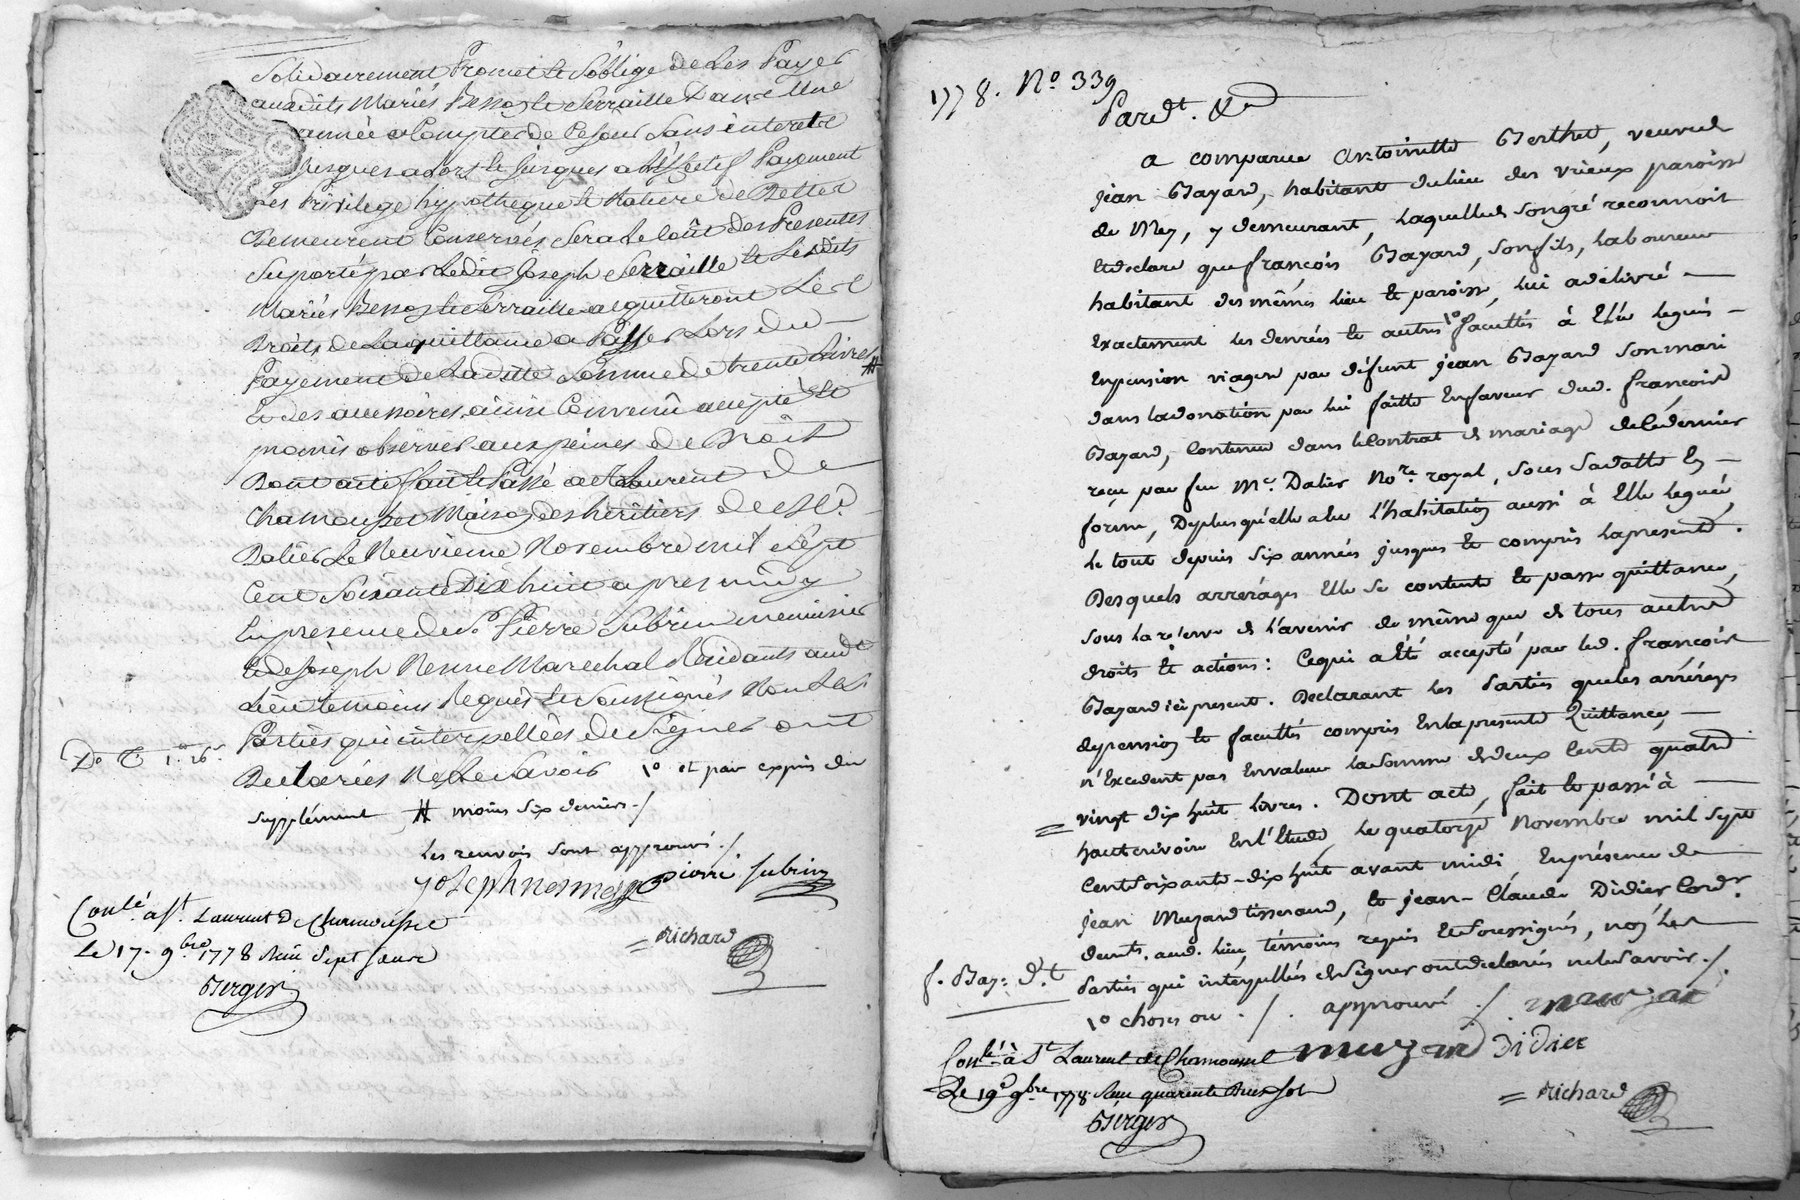 Solidairement Promet et S'oblige de Les Payer
auxdits Mariés Benost et Serraille Dans Une
année a Compter de Ce Jour Sans interet
Jusques alors et Jusques a L'Effectif Payement
Les Privilege hypotheque et Nature de Dettes
Demeurent Conservés Sera Le Coût des Presentes
Suporté par Ledit Joseph Serraille et Lesdits
Mariés Benost et Serraille acquitteront Les
Droits de La quittance a Passer Lors du
Payement de Ladite Somme de trente Livres #
Et des accessoires ainsi Convenû accepté et
promis observer aux peines de Droit
Dont acte fait et Passé a St Laurent de
Chamousset Maison des héritiers de Me
Dalier Le Neuvieme Novembre mil sept
Cent Soixante Dix huit apres midy
En presence de Sr Pierre Subrin menuisier
Et de Joseph Nesme Marechal Residants audt
Lieu temoins Requis et Soussignés Non Les
Parties qui interpellées de Signer ont
De C. 1. 26s
Declarées Ne Le Savoir 1º et par exprès du
supplément # moins six deniers ./
Les renvois sont approuvés ./
Joseph nesme pierre subrin
Conlé à St Laurent De Chamousset
Le 17. 9bre 1778 Reçu Sept sous
= Richard
Berger
1778. Nº 339
Pardt. &a
a comparue antoinette Berthet, veuve de
jean Bayard, habitant du lieu des vrieux paroisse
de Mey, y demeurant, Laquelle de son gré reconnoit
et declare que françois Bayard, son fils, Laboureur
habitant des mêmes lieu et paroisse, lui a délivré —
Exactement les denrées et autres 1º facultés à Elle leguées —
En pension viagere par défunt jean Bayard son mari
dans la donation par lui faitte En faveur dud. françois
Bayard, Contenue dans le Contrat de mariage de Ce dernier
reçu par feu Me. Dalier Nore royal, sous sa datte En —
forme, De plus qu'elle a Eu l'habitation aussi à Elle Leguée,
Le tout depuis six années jusques et compris la presente.
Desquels arrérages Elle se contente et passe quittance,
sous la rés'erve de l'avenir de même que de tous autres
droits et actions : Cequi a Eté accepté par led. françois
Bayard ici present. Declarant les Parties que les arrérages
de pension et facultés compris En la presente Quittance, —
n'Excedent pas En valeur la somme de deux Cents quatre
= vingt dix huit livres. Dont acte, fait et passé à —
hauterivoire En l'Etude, Le quatorze Novembre mil sept
Cent soixante-dix huit avant midi En présence de
jean Muzard tisserand, et jean-Claude Didier Cordr.
demts. aud. lieu, témoins requis Et soussignés, non les
f. Bay: d.t
Parties qui interpellées de signer ont declarées ne le savoir ./.
1º choses ou ./. approuvé ./. muzar
muzard Didier
Conlé à St Laurent de Chamousset
Le 19e 9bre 1778 Reçu quarante Deux sols
= Richard
Berger